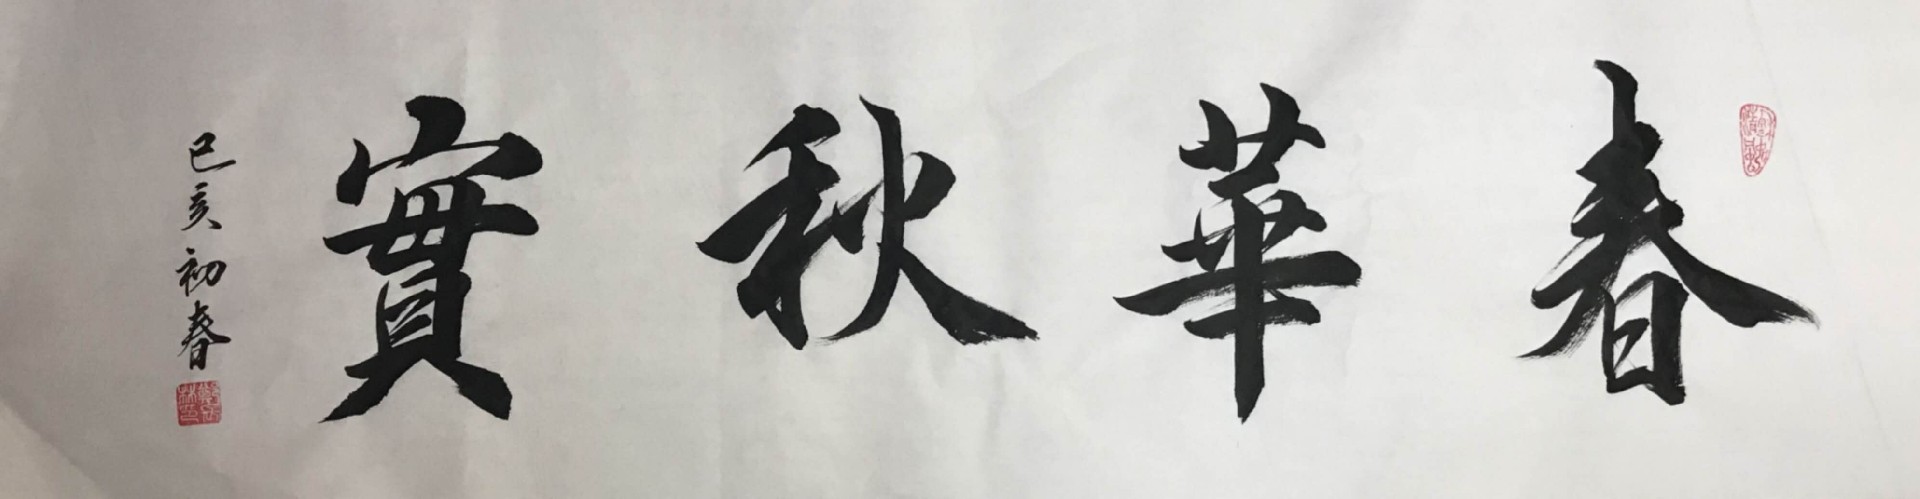 春華秋實
己亥初春